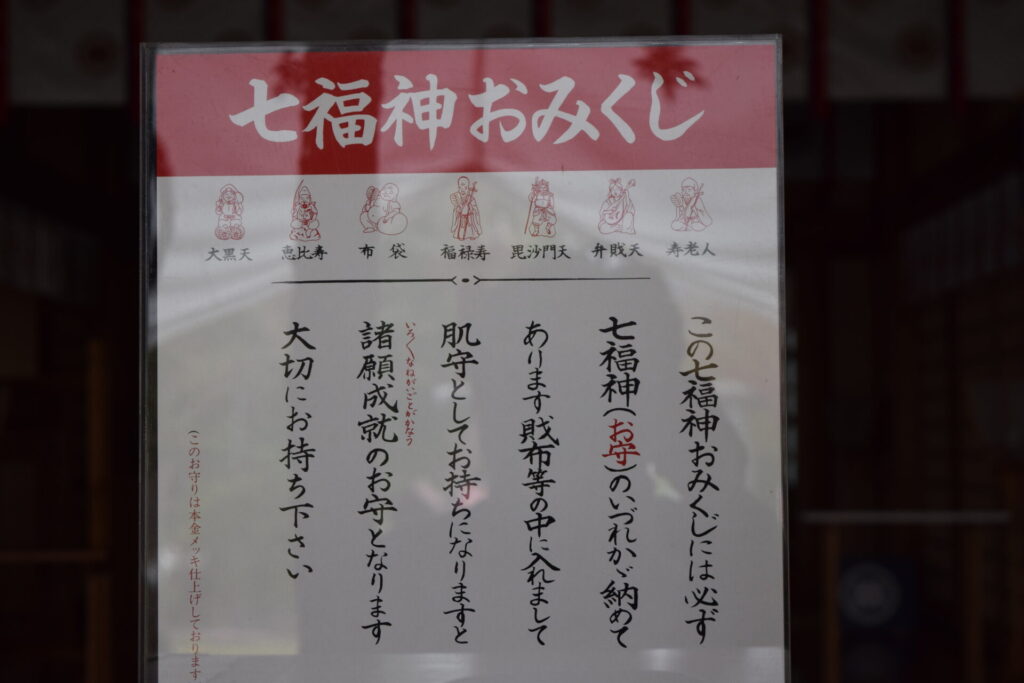 七福神おみくじ
大黒天 恵比寿 布袋 福禄寿 毘沙門天 弁財天 寿老人
この七福神おみくじには必ず
七福神(お守)のいづれかゞ納めて
あります財布等の中に入れまして
肌守としてお持ちになりますと
いろ〱なねがいごとがかなう
諸願成就のお守となります
大切にお持ち下さい
(このお守りは本金メッキ仕上げしております